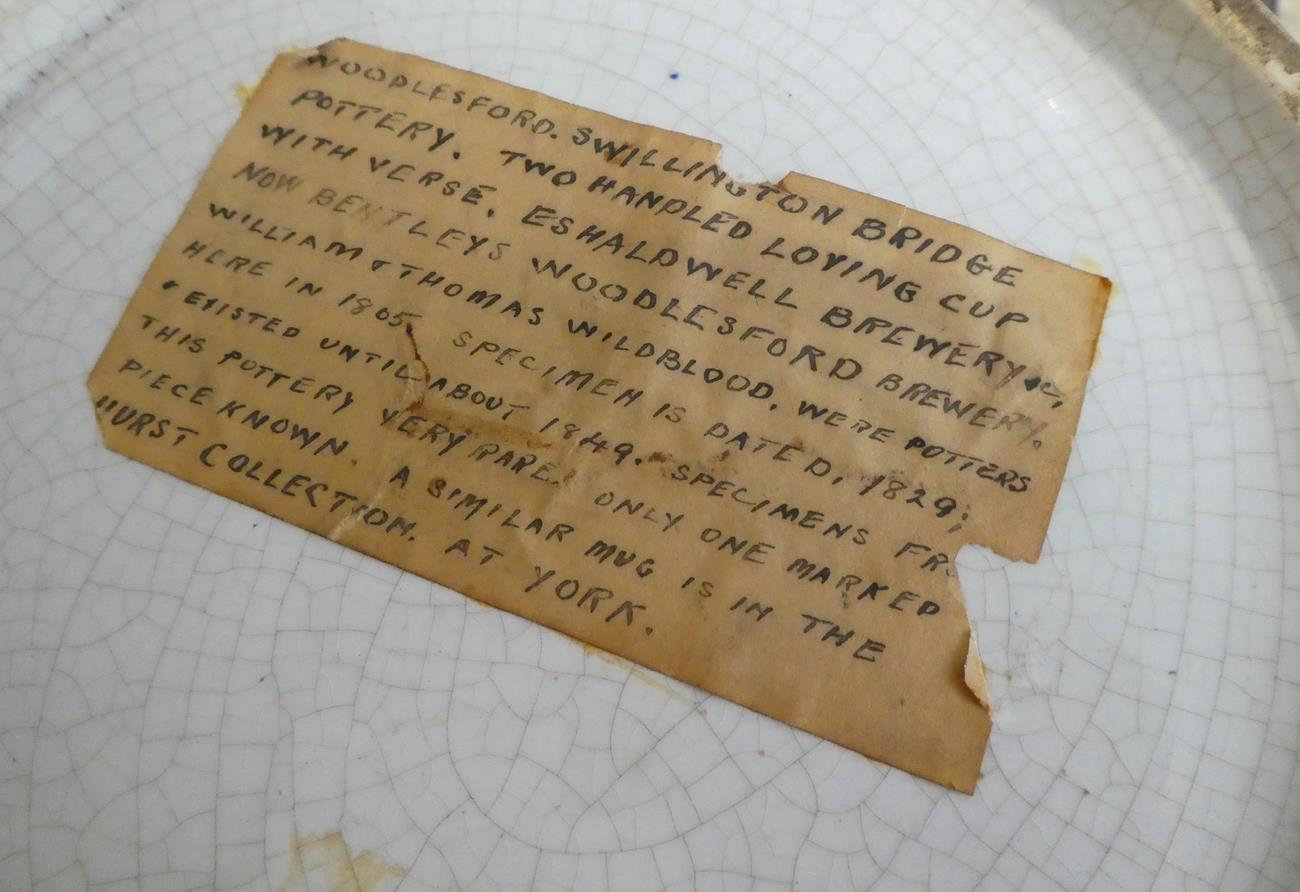 WOODLESFORD. SWILLINGTON BRIDGE
POTTERY. TWO HANDLED LOVING CUP
WITH VERSE. ESHALDWELL BREWERY
NOW BENTLEYS WOODLESFORD BREWERY.
WILLIAM & THOMAS WILDBLOOD, WERE POTTERS
HERE IN 1805. SPECIMEN IS DATED, 1829;
& EXISTED UNTIL ABOUT 1849. SPECIMENS
THIS POTTERY VERY RARE. ONLY ONE MARKED
PIECE KNOWN. A SIMILAR MUG IS IN THE
HURST COLLECTION. AT YORK.